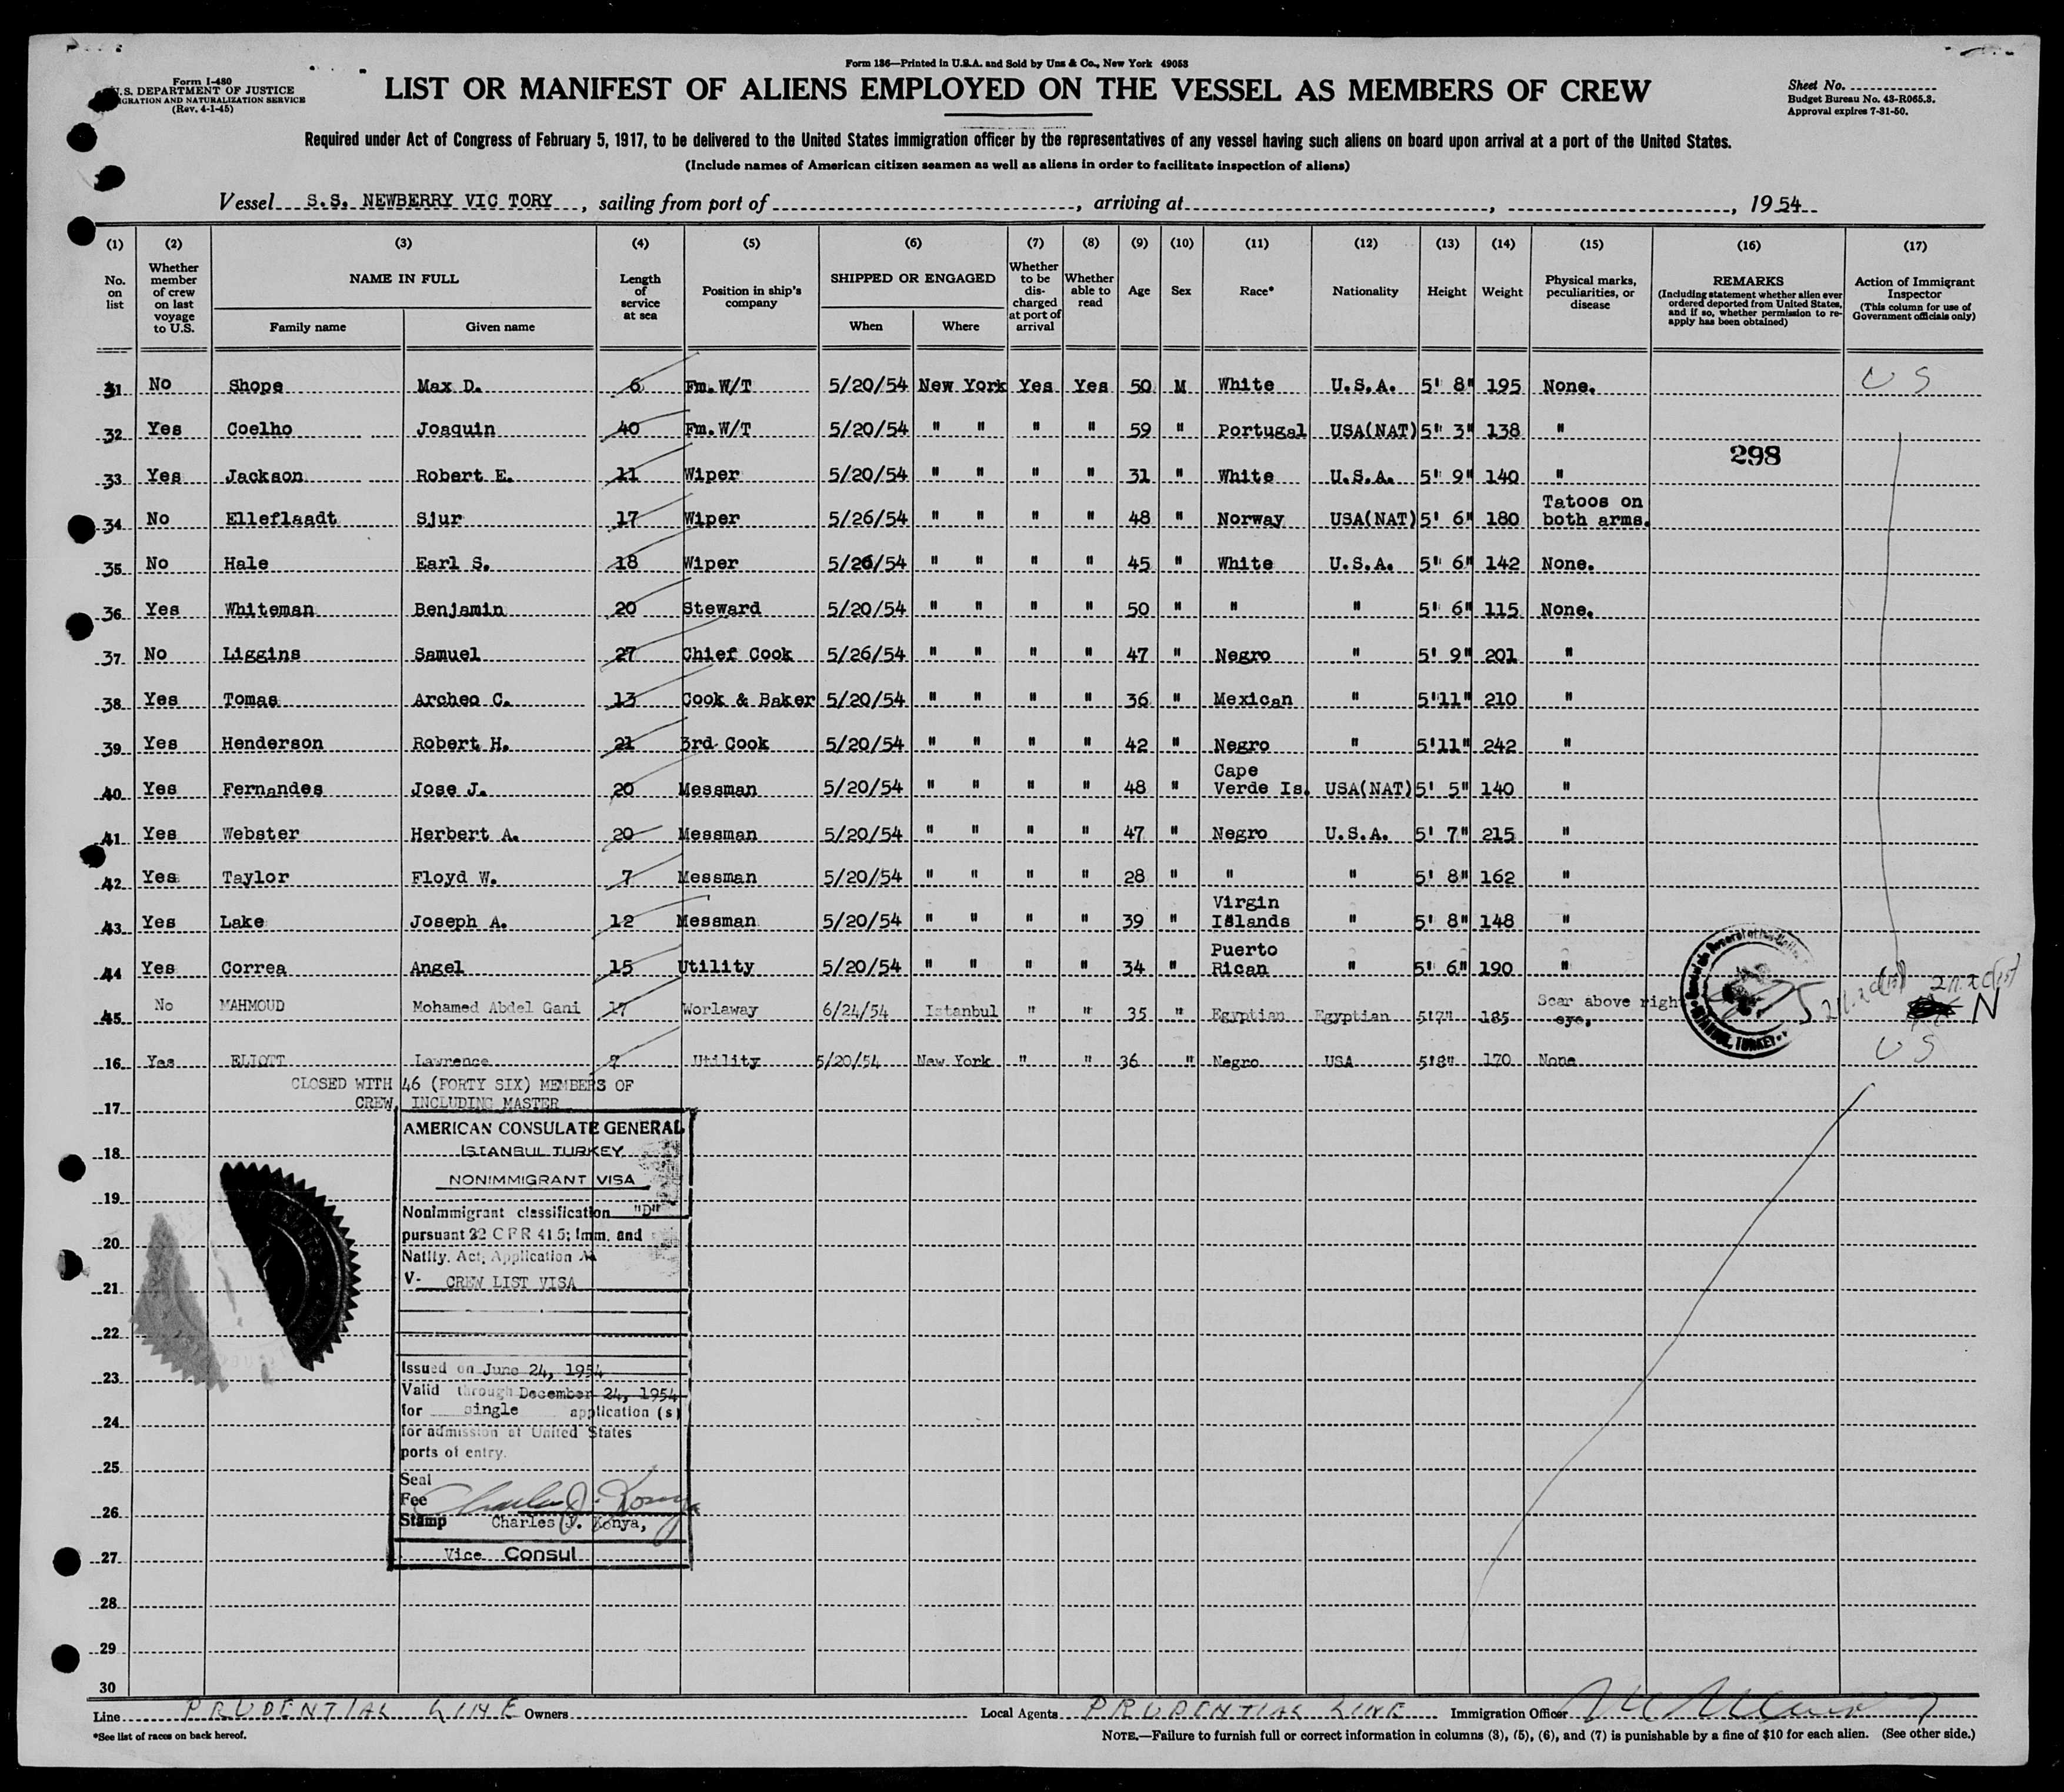 Form I-480
U.S. DEPARTMENT OF JUSTICE
IGRATION AND NATURALIZATION SERVICE
(Rev. 4-1-45)
Form 136—Printed in U.S.A. and Sold by Unz & Co., New York 49053
LIST OR MANIFEST OF ALIENS EMPLOYED ON THE VESSEL AS MEMBERS OF CREW
Sheet No.
Budget Bureau No. 43-R065.3.
Approval expires 7-31-50.
Required under Act of Congress of February 5, 1917, to be delivered to the United States immigration officer by the representatives of any vessel having such aliens on board upon arrival at a port of the United States.
(Include names of American citizen seamen as well as aliens in order to facilitate inspection of aliens)
Vessel S.S. NEWBERRY VIC TORY, sailing from port of , arriving at , , 1954
(1) (2) (3) (4) (5) (6) (7) (8) (9) (10) (11) (12) (13) (14) (15) (16) (17)
No. on list
Whether member of crew on last voyage to U.S.
NAME IN FULL
Family name
Given name
Length of service at sea
Position in ship's company
SHIPPED OR ENGAGED
When
Where
Whether to be dis-charged at port of arrival
Whether able to read
Age
Sex
Race*
Nationality
Height
Weight
Physical marks, peculiarities, or disease
REMARKS
(Including statement whether alien ever ordered deported from United States, and if so, whether permission to re-apply has been obtained)
Action of Immigrant Inspector
(This column for use of Government officials only)
31 No Shope Max D. 6 Fm. W/T 5/20/54 New York Yes Yes 50 M White U.S.A. 5' 8" 195 None. US
32 Yes Coelho Joaquin 40 Fm. W/T 5/20/54 " " " " 59 " Portugal USA(NAT) 5' 3" 138 "
298
33 Yes Jackson Robert E. 11 Wiper 5/20/54 " " " " 31 " White U.S.A. 5' 9" 140 "
34 No Elleflaadt Sjur 17 Wiper 5/26/54 " " " " 48 " Norway USA(NAT) 5' 6" 180 Tatoos on both arms.
35 No Hale Earl S. 18 Wiper 5/26/54 " " " " 45 " White U.S.A. 5' 6" 142 None.
36 Yes Whiteman Benjamin 20 Steward 5/20/54 " " " " 50 " " " 5' 6" 115 None.
37 No Liggins Samuel 27 Chief Cook 5/26/54 " " " " 47 " Negro " 5' 9" 201 "
38 Yes Tomas Archeo C. 13 Cook & Baker 5/20/54 " " " " 36 " Mexican " 5'11" 210 "
39 Yes Henderson Robert H. 21 3rd Cook 5/20/54 " " " " 42 " Negro " 5'11" 242 "
40 Yes Fernandes Jose J. 20 Messman 5/20/54 " " " " 48 " Cape Verde Is. USA(NAT) 5' 5" 140 "
41 Yes Webster Herbert A. 20 Messman 5/20/54 " " " " 47 " Negro U.S.A. 5' 7" 215 "
42 Yes Taylor Floyd W. 7 Messman 5/20/54 " " " " 28 " " " 5' 8" 162 "
43 Yes Lake Joseph A. 12 Messman 5/20/54 " " " " 39 " Virgin Islands " 5' 8" 148 "
44 Yes Correa Angel 15 Utility 5/20/54 " " " " 34 " Puerto Rican " 5' 6" 190 "
45 No MAHMOUD Mohamed Abdel Gani 17 Worlaway 6/24/54 Istanbul " " 35 " Egyptian Egyptian 5'7" 185 Scar above right eye, N
16 Yes ELIOTT Lawrence 7 Utility 5/20/54 New York " " 36 " Negro USA 5'8" 170 None US
CLOSED WITH 46 (FORTY SIX) MEMBERS OF
CREW, INCLUDING MASTER
17
18
19
20
21
22
23
24
25
26
27
28
29
30
AMERICAN CONSULATE GENERAL
ISTANBUL TURKEY
NONIMMIGRANT VISA
Nonimmigrant classification "D"
pursuant 22 CFR 41 5; Imm. and
Natlty. Act; Application
V- CREW LIST VISA
Issued on June 24, 1954
Valid through December 24, 1954
for single application (s)
for admission at United States
ports of entry.
Seal
Fee
Stamp Charles J. Konya,
Vice Consul
Line PRUDENTIAL LINE Owners Local Agents PRUDENTIAL LINE Immigration Officer
*See list of races on back hereof.
NOTE.—Failure to furnish full or correct information in columns (3), (5), (6), and (7) is punishable by a fine of $10 for each alien. (See other side.)